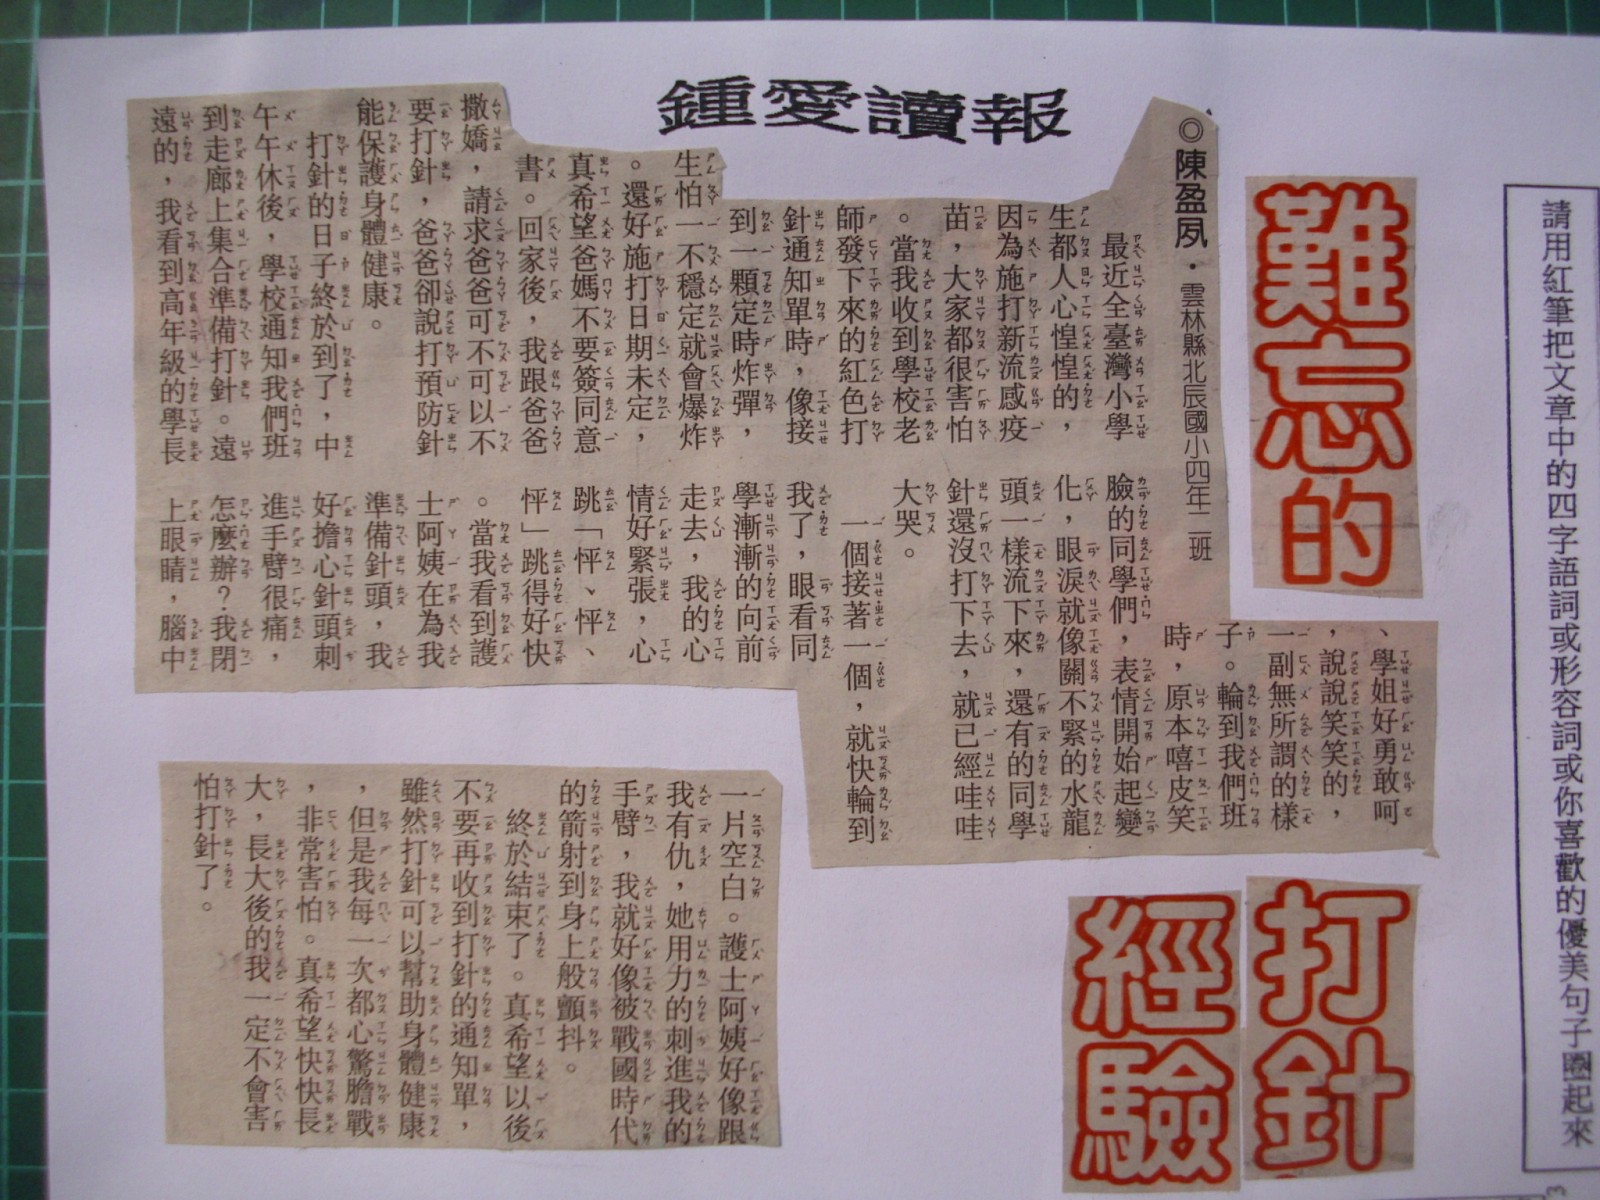 鍾愛讀報
請用紅筆把文章中的四字語詞或形容詞或你喜歡的優美句子圈起來
難忘的
打針
經驗
◎陳盈夙．雲林縣北辰國小四年二班
最近全臺灣小學
生都人心惶惶的，
因為施打新流感疫
苗，大家都很害怕
。當我收到學校老
師發下來的紅色打
針通知單時，像接
到一顆定時炸彈，
生怕一不穩定就會爆炸
。還好施打日期未定，
真希望爸媽不要簽同意
書。回家後，我跟爸爸
撒嬌，請求爸爸可不可以不
要打針，爸爸卻說打預防針
能保護身體健康。
打針的日子終於到了，中
午午休後，學校通知我們班
到走廊上集合準備打針。遠
遠的，我看到高年級的學長
、學姐好勇敢呵
，說說笑笑的，
一副無所謂的樣
子。輪到我們班
時，原本嘻皮笑
臉的同學們，表情開始起變
化，眼淚就像關不緊的水龍
頭一樣流下來，還有的同學
針還沒打下去，就已經哇哇
大哭。
一個接著一個，就快輪到
我了，眼看同
學漸漸的向前
走去，我的心
情好緊張，心
跳「怦、怦、
怦」跳得好快
。當我看到護
士阿姨在為我
準備針頭，我
好擔心針頭刺
進手臂很痛，
怎麼辦？我閉
上眼睛，腦中
一片空白。護士阿姨好像跟
我有仇，她用力的刺進我的
手臂，我就好像被戰國時代
的箭射到身上般顫抖。
終於結束了。真希望以後
不要再收到打針的通知單，
雖然打針可以幫助身體健康
，但是我每一次都心驚膽戰
，非常害怕。真希望快快長
大，長大後的我一定不會害
怕打針了。
3